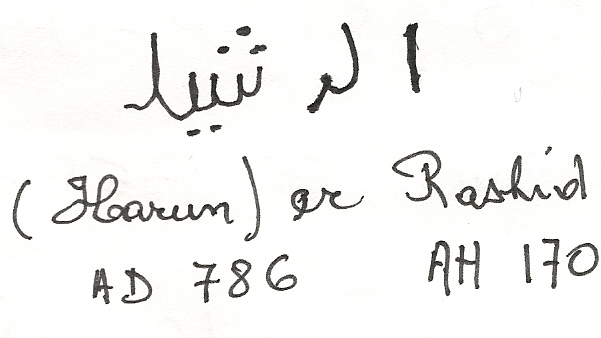 الرشيد
(Harun) er Rashid
AD 786 AH 170